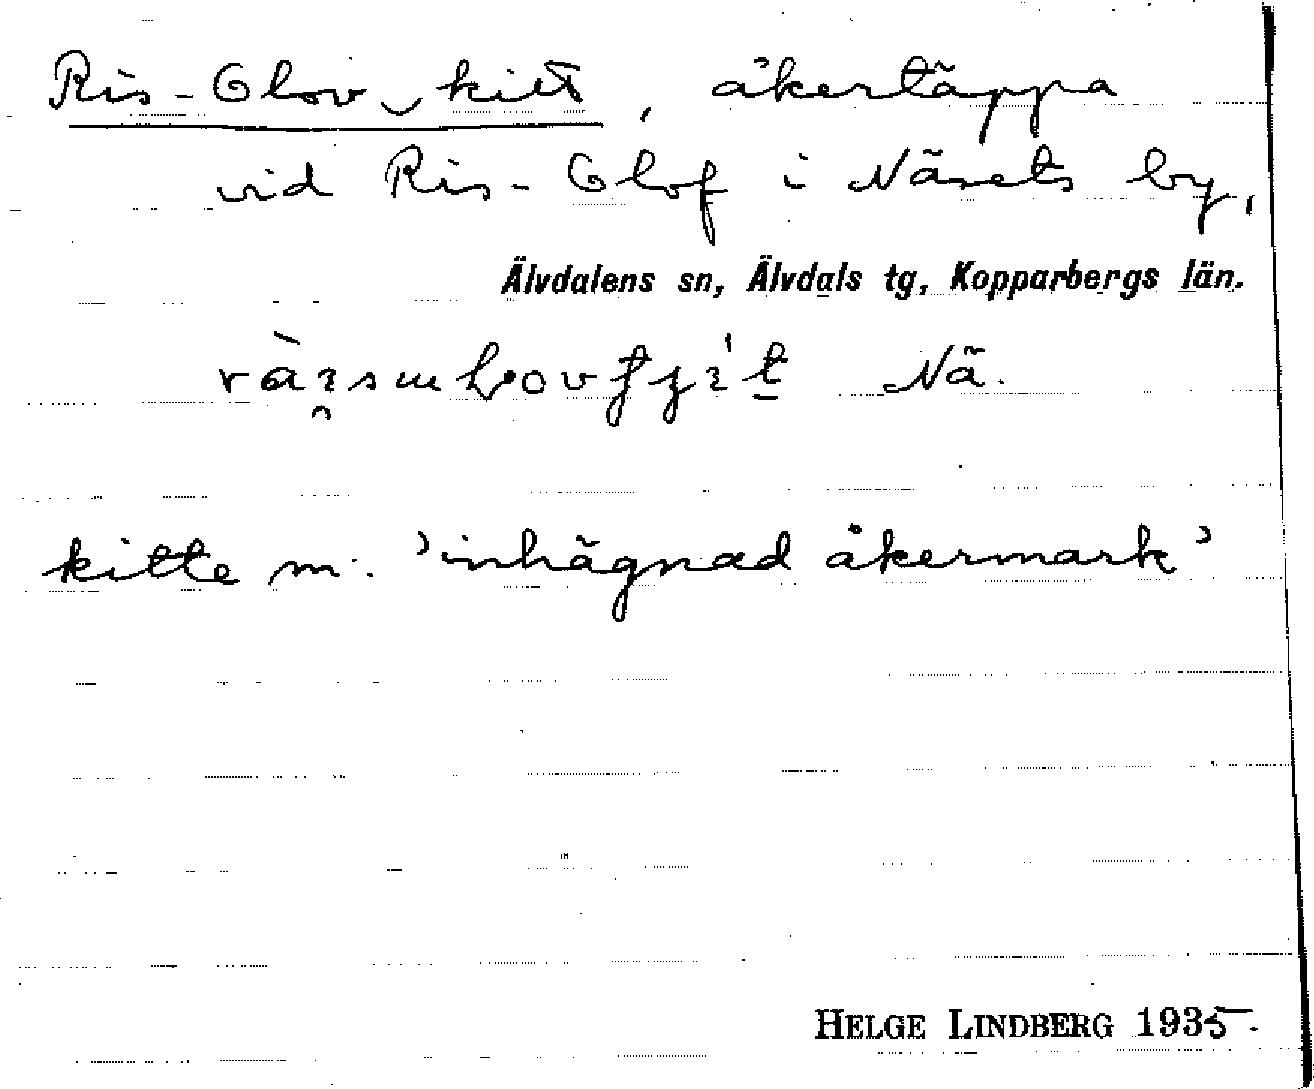 Ris-Olov kitt, åkertäppa
vid Ris-Olof i Näsets by,
Älvdalens sn, Älvdals tg, Kopparbergs län.
Nä.
kitte m. 'inhägnad åkermark'
HELGE LINDBERG 1935.